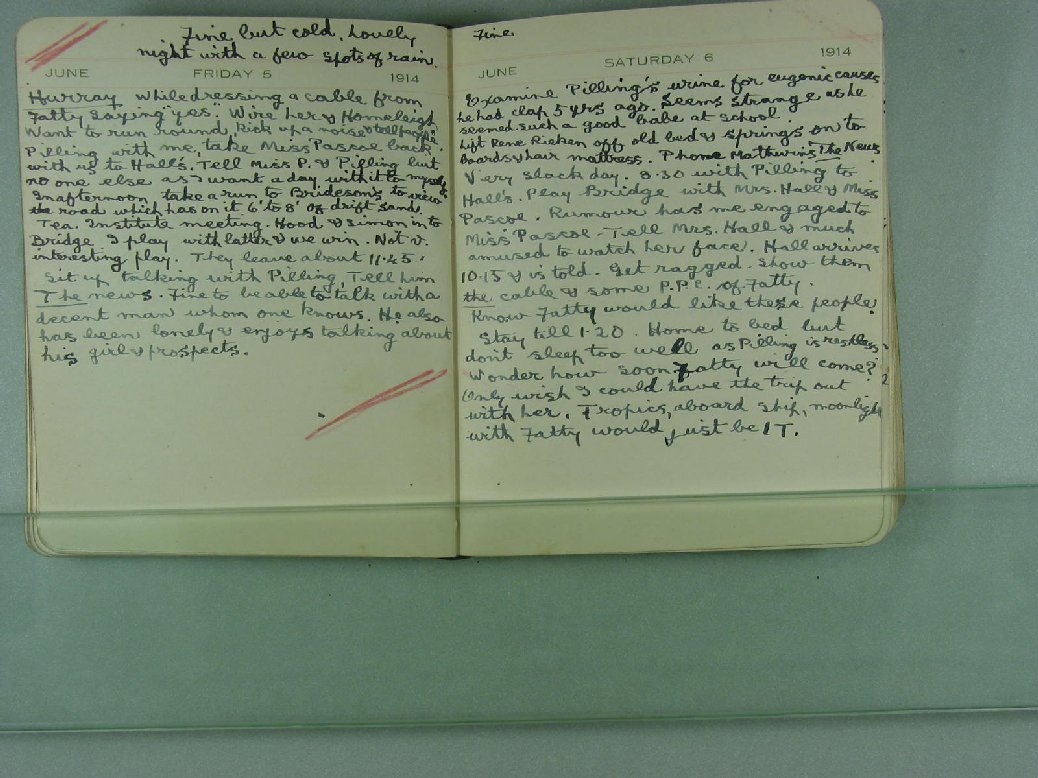 Fine but cold. Lovely
night with a few spots of rain.
JUNE FRIDAY 5 1914
Hurray while dressing a cable from
Fatty saying "yes". Wire her & Homeleigh
Want to run round, kick up a noise
Pilling with me, take Miss Pascoe back
with us to Hall's. Tell Miss P. & Pilling but
no one else as I want a day with it to myself
In afternoon take a run to Brideson's to view
the road which has on it 6' to 8' of drift sand
Tea. Institute meeting. Hood & Simon in to
Bridge I play with latter & we win. Not v.
interesting play. They leave about 11.45.
Sit up talking with Pilling, Tell him
The news. Fine to be able to talk with a
decent man whom one knows. He also
has been lonely & enjoys talking about
his girl & prospects.
Fine
JUNE SATURDAY 6 1914
Examine Pilling's urine for eugenic causes
he had clap 5 yrs ago. Seems strange as he
seemed such a good babe at school!
Lift Rene Ricken off old bed & springs on to
boards & hair mattress. Phone The News
Very slack day. 8.30 with Pilling to
Hall's. Play Bridge with Mrs. Hall & Miss
Pascoe. Rumour has me engaged to
Miss Pascoe - Tell Mrs. Hall & much
amused to watch her face. Hall arrives
10.15 & is told. Get ragged. Show them
the cable & some P.P.C. of Fatty.
Know Fatty would like these people
Stay till 1.20. Home to bed but
don't sleep too well as Pilling is restless
Wonder how soon Fatty will come?
Only wish I could have the trip out
with her. Tropics, aboard ship, moonlight
with Fatty would just be IT.